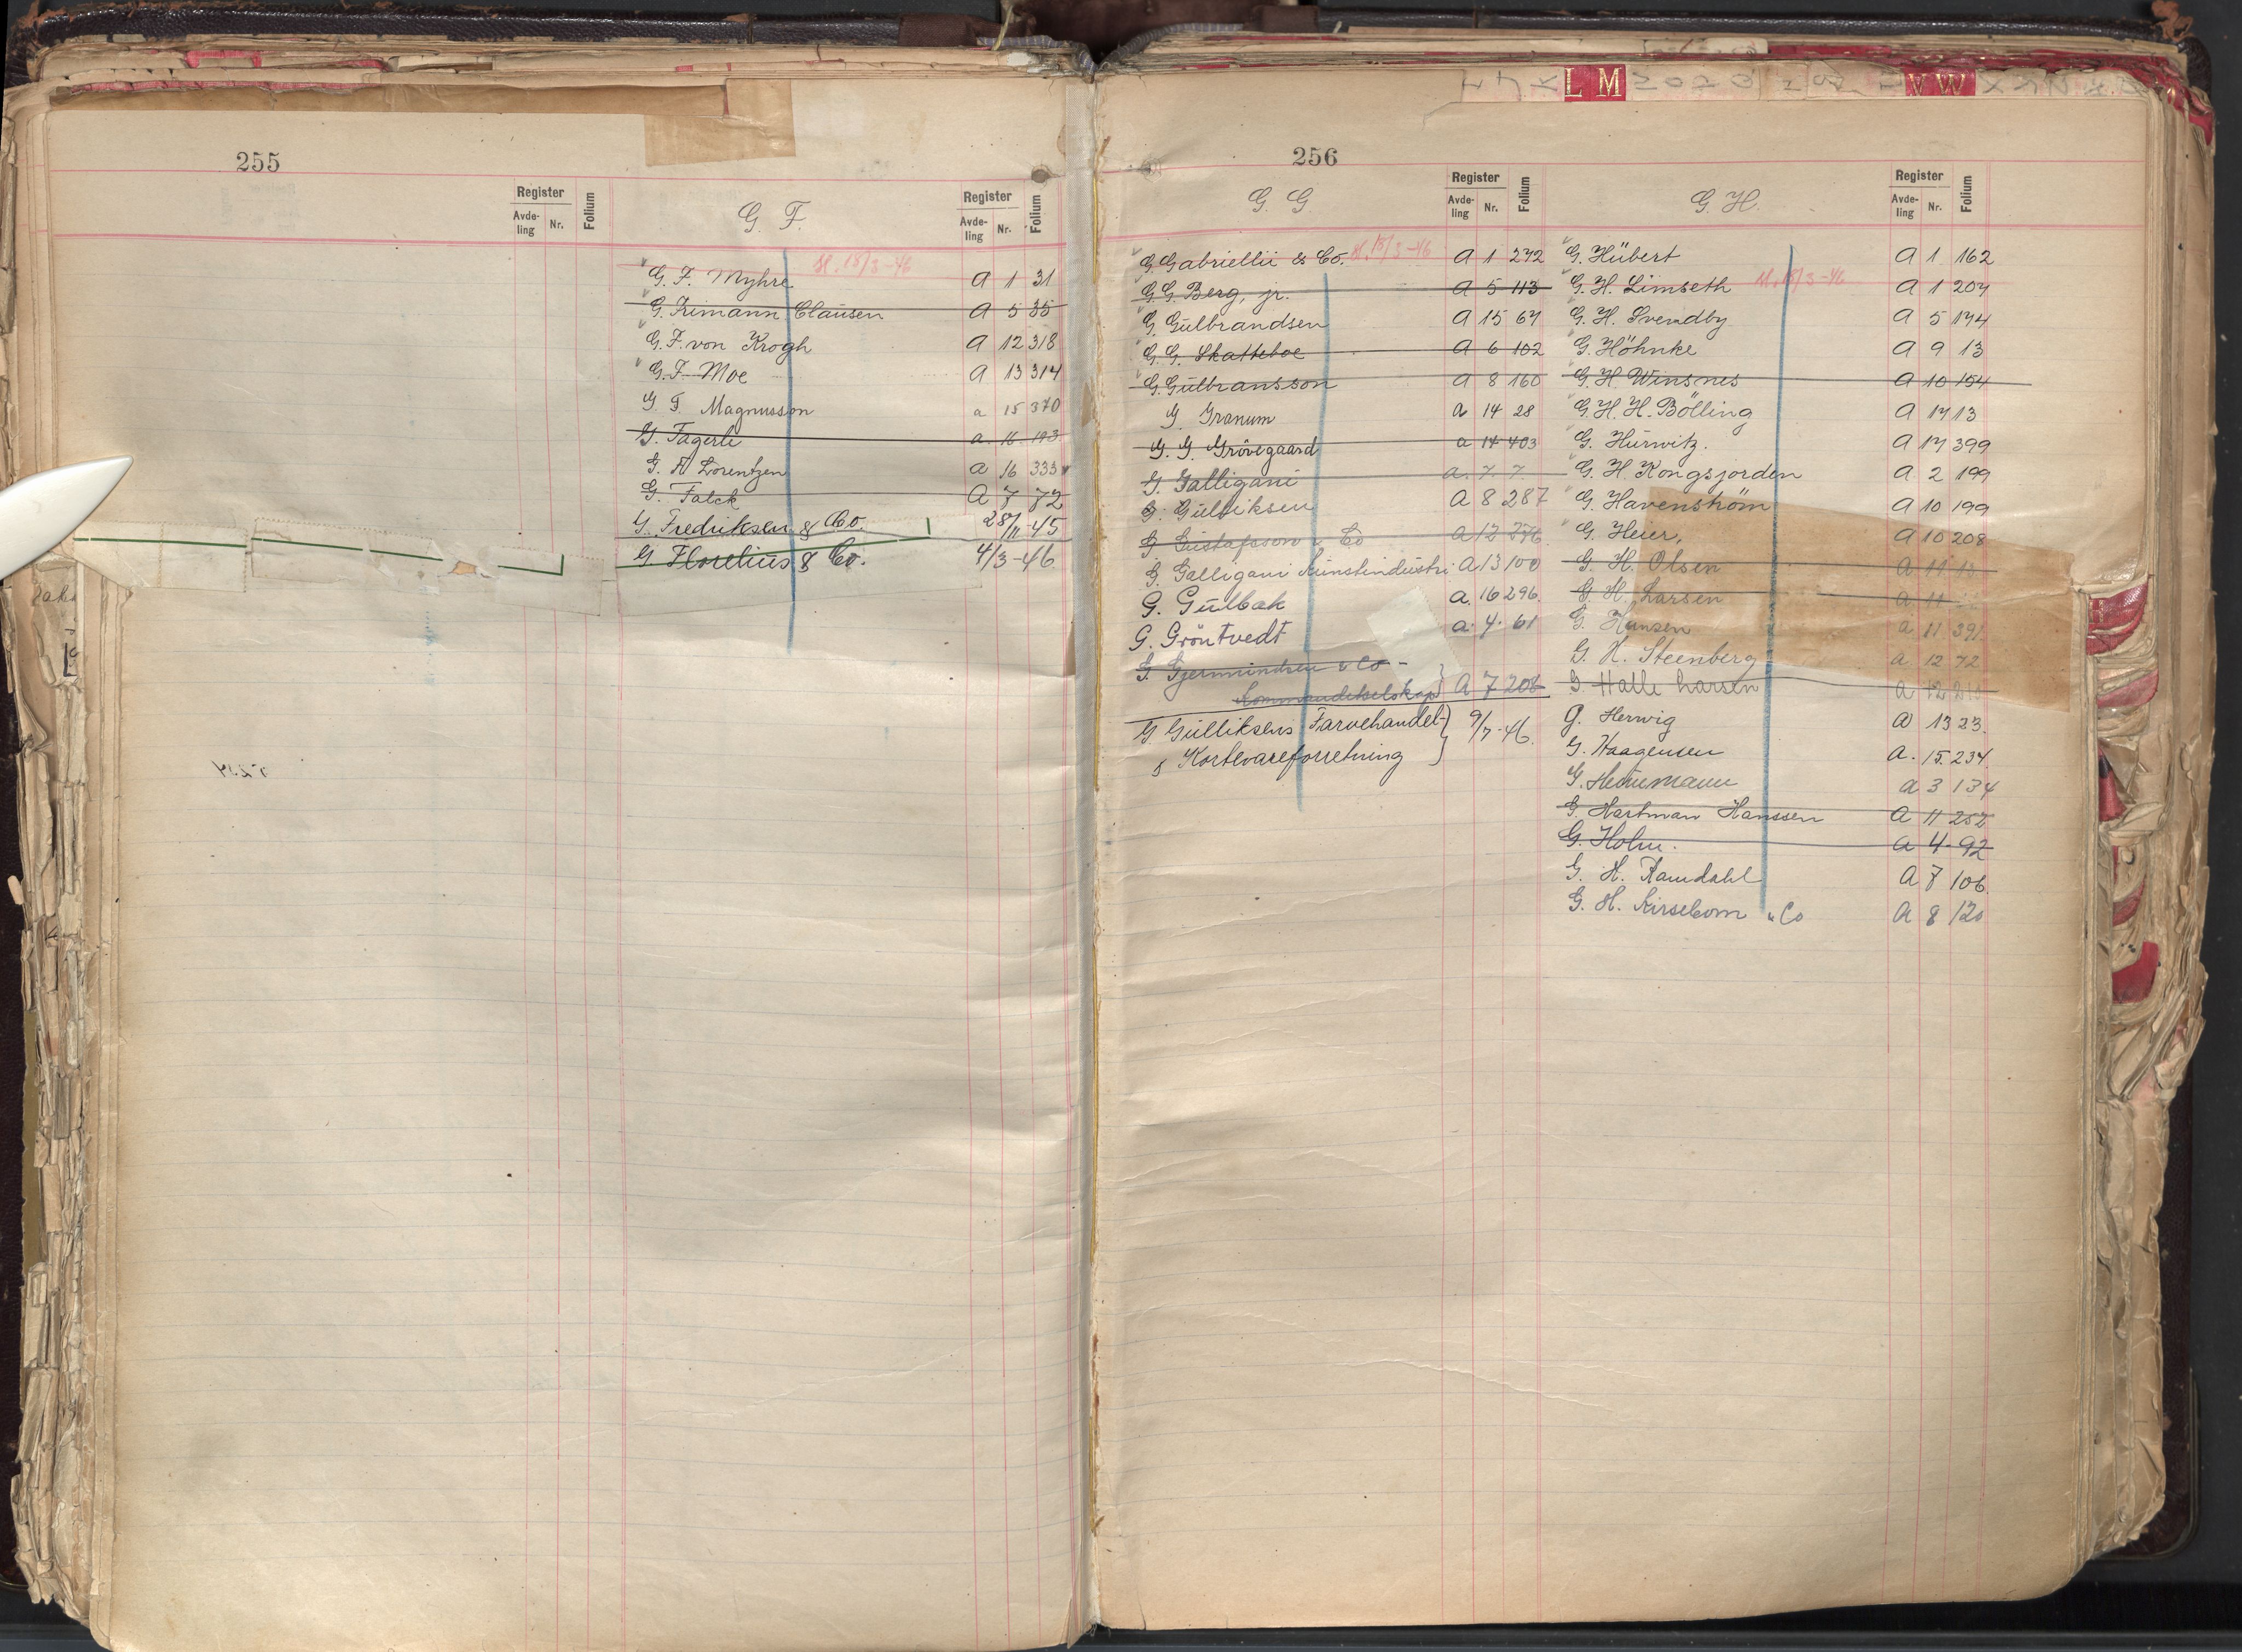 255
Register
Avde-
ling
Nr.
Folium
G. F.
Register
Avde-
ling
Nr.
Folium
18/3-46
G. F. Myhre A 1 31
G. Frimann Clausen A 5 35
G. F. von Krogh A 12 318
G. F. Moe A 13 314
G. F. Magnusson a 15 370
G. Fagerli a. 16 193
G. F. Lorentzen a 16 333
G. Falck A 7 72
G. Fredriksen & Co. 28/11-45
G. Florelius & Co. 4/3-46
256
G. G
Register
Avde-
ling
Nr.
Folium
G. Gabriellii & Co. 18/3-46 A 1 272
G. G. Berg, jr. A 5 113
G. Gulbrandsen A 15 67
G. G. Skatteboe A 6 102
G. Gulbransson A 8 160
G. Granum a 14 28
G. G. Grövegaard a 14 403
G. Galligani a. 7. 7
G. Gulliksen A 8 287
G. Gustafsson & Co A 12
G. Galligani Kunstindustri A 13 100
G. Gulbak a. 16 296.
G. Gröntvedt a. 4. 61
G. Gjermundsen & Co -
Kommandittselskap A 7 208
G. Gulliksens Farvehandel 9/7-46.
& Kortevareforretning
L M
V W
G. H.
Register
Avde-
ling
Nr.
Folium
G. Hübert A 1 162
G. H. Limseth 18/3-46 A 1 207
G. H. Svendby A 5 174
G. Höhnke A 9 13
G. H. Winsnes A 10 154
G. H. H. Bölling A 17 13
G. Hurwitz. A 17 399
G. H. Kongsjorden A 2 199
G. Havenström A 10 199
G. Heier, A 10 208
G. H. Olsen A 11 13
G. H. Larsen a 11
G. Hansen a 11 391
G. H. Steenberg a 12 72
G. Halle Larsen a 12
G. Herwig a 13 23.
G. Haagensen a. 15. 234.
G. Heinemann a 3 134
G. Hartman Hanssen A 11 252
G. Holm. a 4. 92
G. H. Ramdahl A 7 106.
G. H. Kirsebom & Co A 8 120